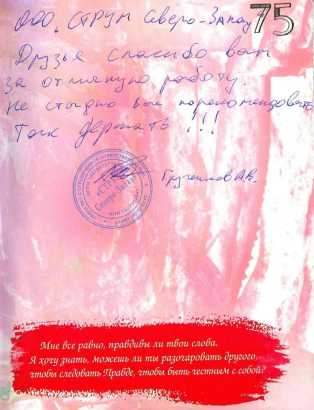 ООО. СТРУМ Северо-Запад 75
Друзья спасибо вам
за отличную работу.
Не стыдно вас порекомендовать
Так держать !!!
Мне все равно, правдивы ли твои слова.
Я хочу знать, можешь ли ты разочаровать другого,
чтобы следовать Правде, чтобы быть честным с собой?